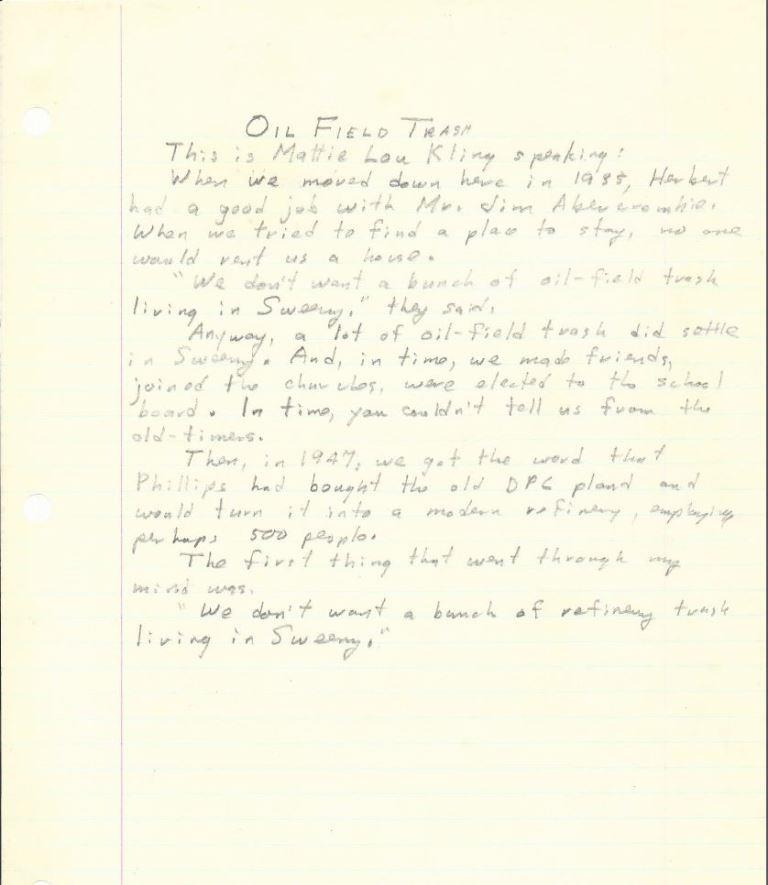 OIL FIELD TRASH
This is Mattie Lou Kling speaking:
When we moved down here in 1935, Herbert
had a good job with Mr. Jim Abercrombie.
When we tried to find a place to stay, no one
would rent us a house.
"We don't want a bunch of oil-field trash
living in Sweeny," they said.
Anyway, a lot of oil-field trash did settle
in Sweeny. And, in time, we made friends,
joined the churches, were elected to the school
board. In time, you couldn't tell us from the
old-timers.
Then, in 1947, we got the word that
Phillips had bought the old DPC pland and
would turn it into a modern refinery, employing
perhaps 500 people.
The first thing that went through my
mind was.
"We don't want a bunch of refinery trash
living in Sweeny."